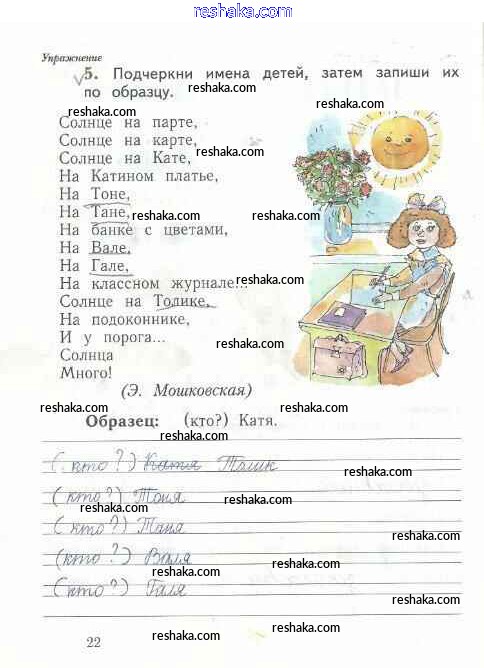 reshaka.com
Упражнение
5. Подчеркни имена детей, затем запиши их
по образцу.
reshaka.com
Солнце на парте,
reshaka.com
Солнце на карте,
Солнце на Кате,
reshaka.com
На Катином платье,
На Тоне,
reshaka.com
На Тане,
reshaka.com
reshaka.com
На банке с цветами,
На Вале,
reshaka.com
На Гале,
На классном журнале...
reshaka.com
Солнце на Толике,
reshaka.com
На подоконнике,
И у порога...
reshaka.com
reshaka.com
Солнца
Много!
(Э. Мошковская)
reshaka.com
reshaka.com
Образец: (кто?) Катя.
reshaka.com
(кто?) Катя Толик
reshaka.com
(кто?) Тоня
reshaka.com
reshaka.com
(кто?) Таня
reshaka.com
(кто?) Валя
reshaka.com
reshaka.com
(кто?) Галя
reshaka.com
reshaka.com
22
reshaka.com
reshaka.com